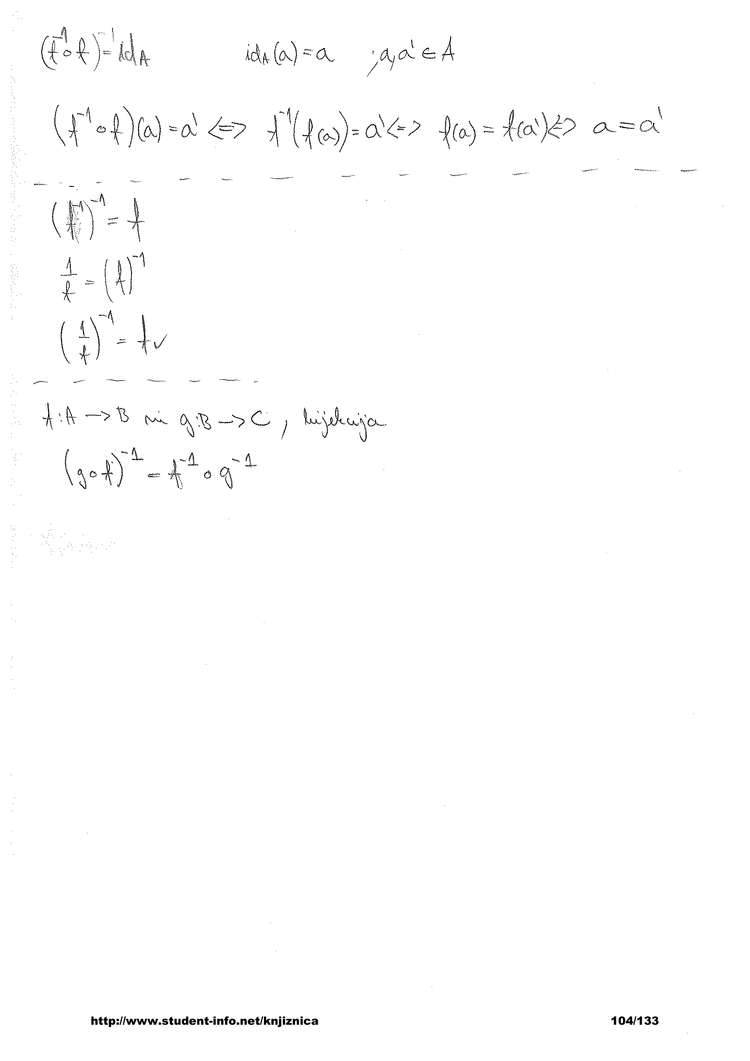 (f⁻¹∘f)⁻¹=id_A id_A(a)=a ; a,a' ∈ A
(f⁻¹∘f)(a)=a' <=> f⁻¹(f(a))=a' <=> f(a)=f(a') <=> a=a'
(f⁻¹)⁻¹=f
1/f=(f)⁻¹
(1/f)⁻¹=f ✓
f:A→B in g:B→C, bijekcija
(g∘f)⁻¹=f⁻¹∘g⁻¹
http://www.student-info.net/knjiznica 104/133